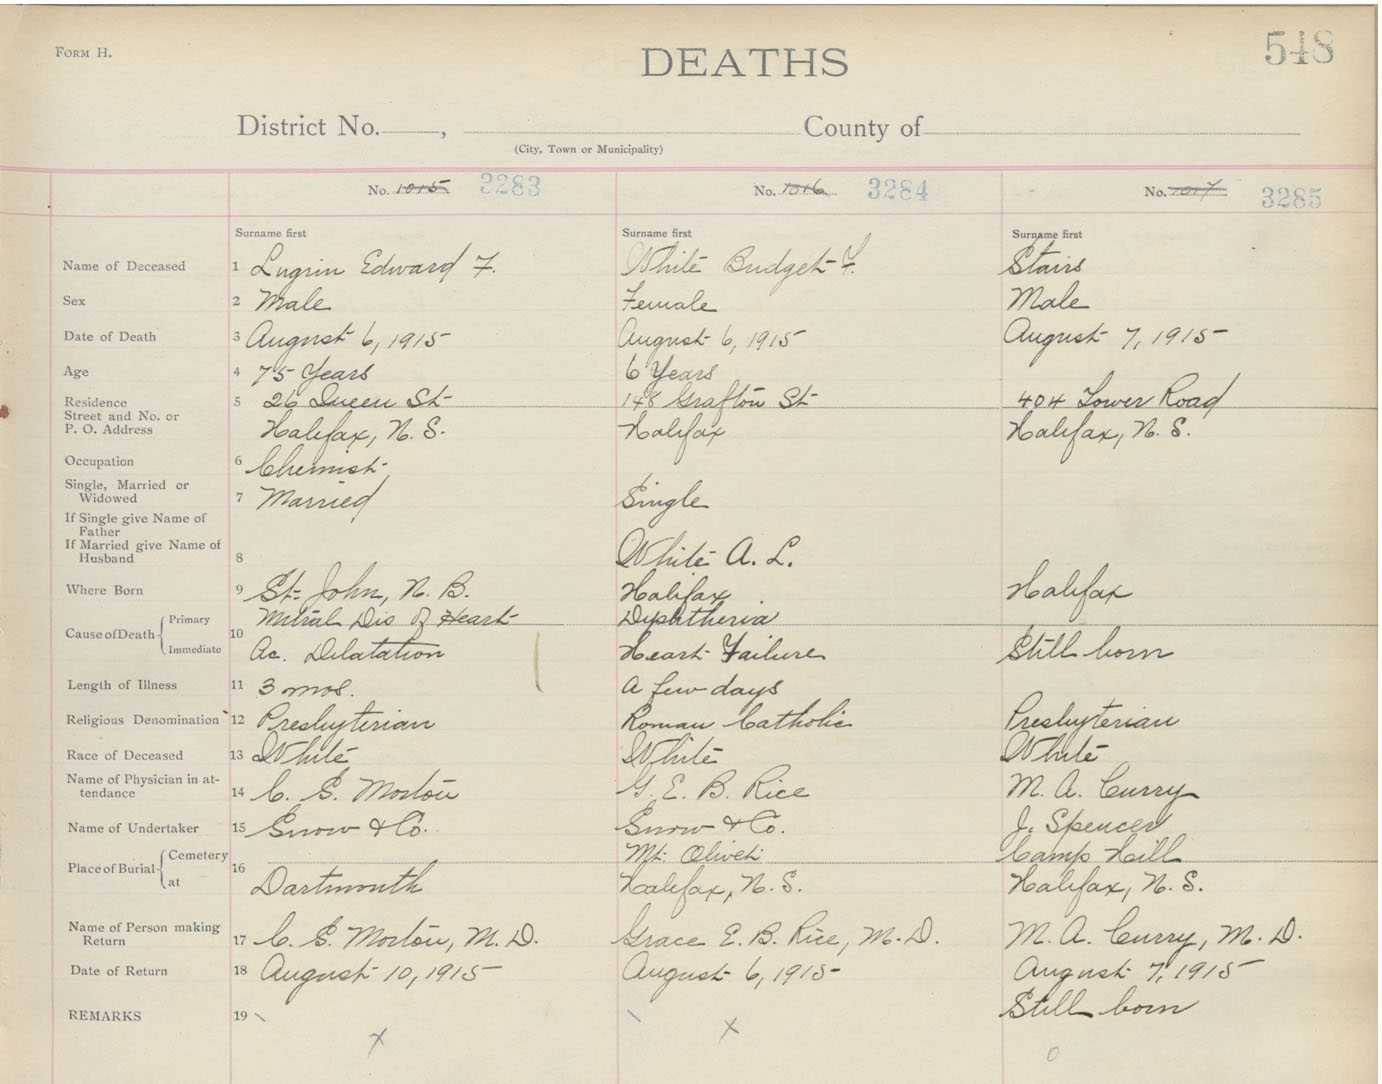 FORM H.
DEATHS
548
District No. , County of
(City, Town or Municipality)
No. 1015 3283 No. 1016 3284 No. 1017 3285
Surname first Surname first Surname first
Name of Deceased 1 Lugrin Edward F. White Budget F. Stairs
Sex 2 Male Female Male
Date of Death 3 August 6, 1915 August 6, 1915 August 7, 1915
Age 4 75 Years 6 Years
Residence 5 26 Queen St 148 Grafton St 404 Tower Road
Street and No. or
P. O. Address Halifax, N. S. Halifax Halifax, N. S.
Occupation 6 Chemist
Single, Married or
Widowed 7 Married Single
If Single give Name of
Father
If Married give Name of
Husband 8 White A. L.
Where Born 9 St. John, N. B. Halifax Halifax
Cause of Death Primary 10 Mitral Dis of Heart Diphtheria
Immediate Ac. Dilatation Heart Failure Still born
Length of Illness 11 3 mos. A few days
Religious Denomination 12 Presbyterian Roman Catholic Presbyterian
Race of Deceased 13 White White White
Name of Physician in at-
tendance 14 C. S. Morton G. E. B. Rice M. A. Curry
Name of Undertaker 15 Snow & Co. Snow & Co. J. Spencer
Place of Burial Cemetery 16 Mt. Olivet Camp Hill
at Dartmouth Halifax, N. S. Halifax, N. S.
Name of Person making
Return 17 C. S. Morton, M. D. Grace E. B. Rice, M. D. M. A. Curry, M. D.
Date of Return 18 August 10, 1915 August 6, 1915 August 7, 1915
REMARKS 19 Still born